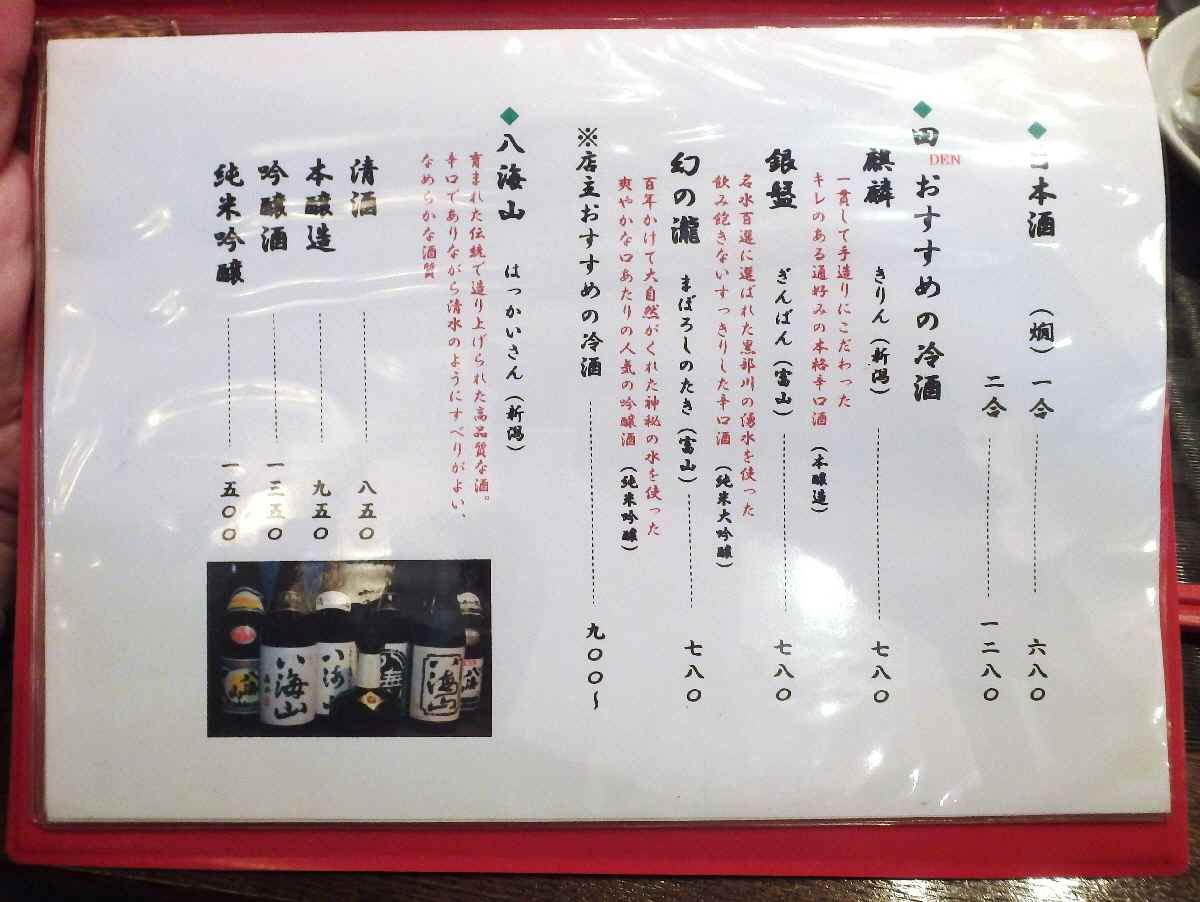 ◆日本酒 (燗) 一合 六八〇
二合 一二八〇
◆田 DEN おすすめの冷酒
麒麟 きりん(新潟) 七八〇
一貫して手造りにこだわった
キレのある通好みの本格辛口酒 (本醸造)
銀盤 ぎんばん(富山) 七八〇
名水百選に選ばれた黒部川の湧水を使った
飲み飽きないすっきりした辛口酒 (純米大吟醸)
幻の瀧 まぼろしのたき(富山) 七八〇
百年かけて大自然がくれた神秘の水を使った
爽やかな口あたりの人気の吟醸酒 (純米吟醸)
※店主おすすめの冷酒 九〇〇~
◆八海山 はっかいさん(新潟)
育まれた伝統で造り上げられた高品質な酒。
辛口でありながら清水のようにすべりがよい、
なめらかな酒質
清酒 八五〇
本醸造 九五〇
吟醸酒 一三五〇
純米吟醸 一五〇〇
八海山
八海山
八海山
八海山